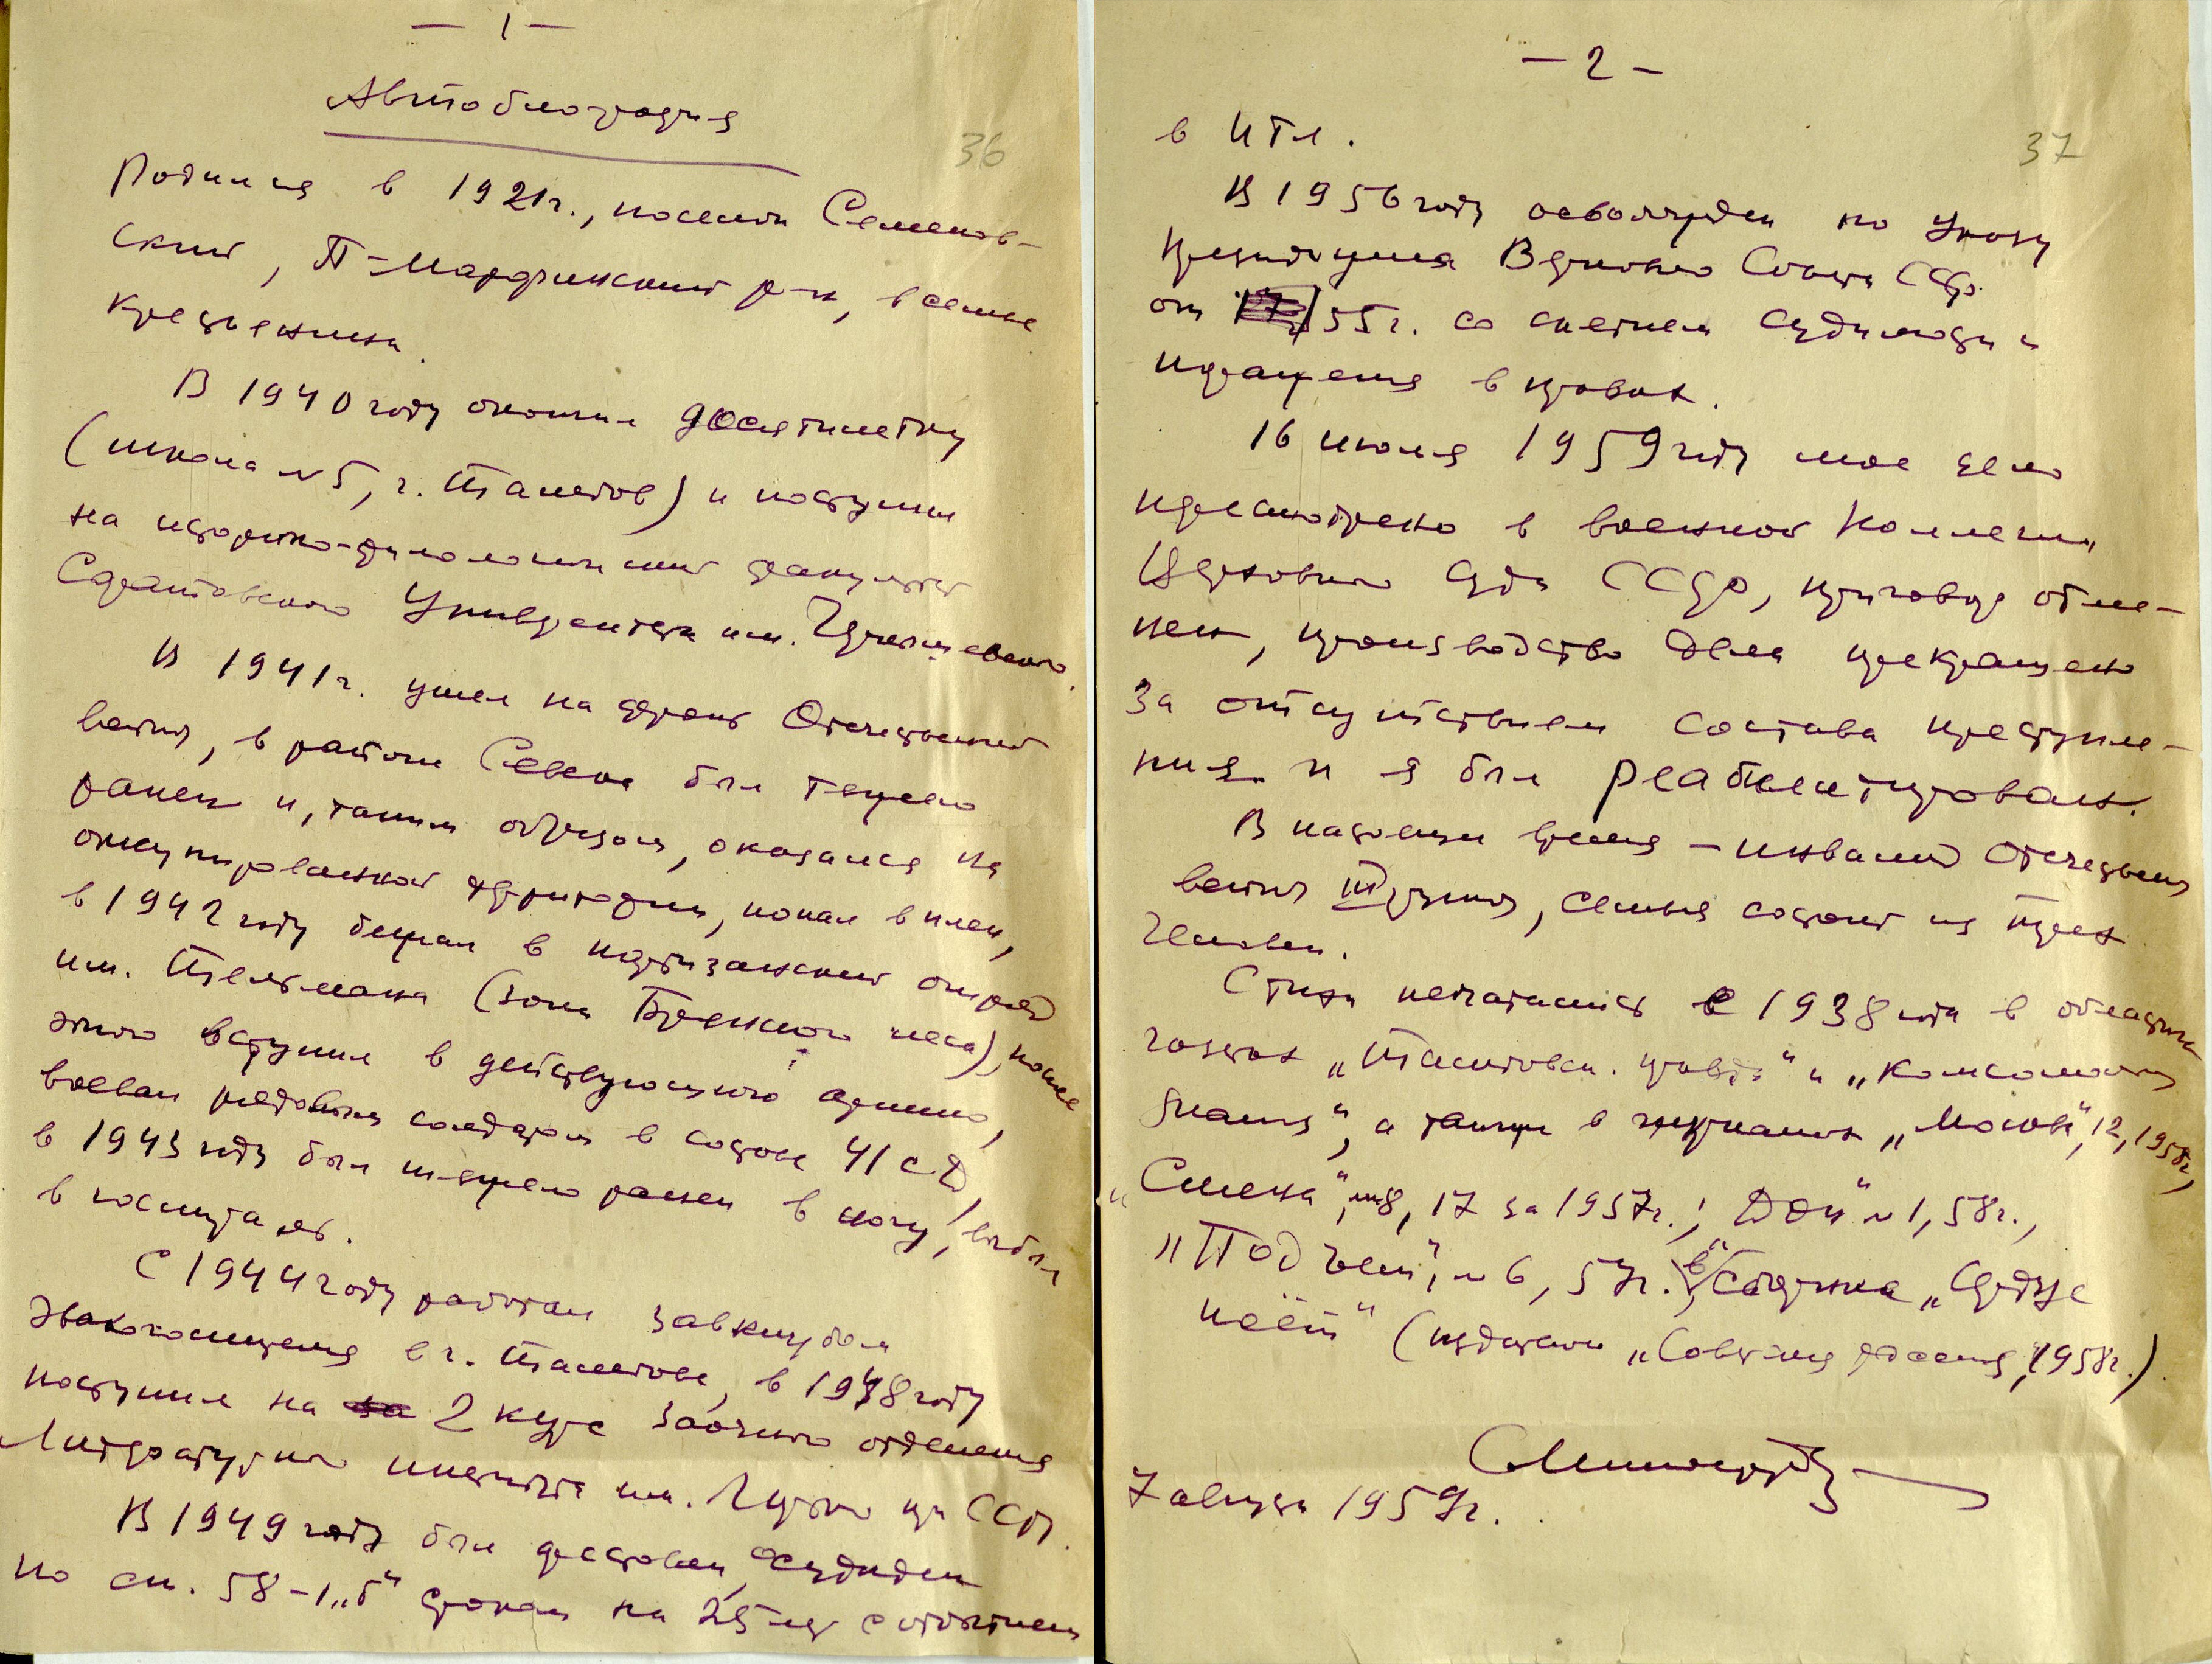 — 1 —
Автобиография
36
Родился в 1921г., поселок Семенов-
ский, П-Марфинский р-н, в семье
крестьянина.
В 1940 году окончил десятилетку
(школа №5, г. Тамбов) и поступил
на историко-филологический факультет
Саратовского Университета им. Чернышевского.
В 1941г. ушел на фронт Отечественной
войны, в районе Севска был тяжело
ранен и, таким образом, оказался на
оккупированной территории, попал в плен,
в 1942 году бежал в партизанский отряд
им. Тельмана (зона Брянского леса), после
этого вступил в действующую армию,
воевал рядовым солдатом в составе 41 с.д,
в 1943 году был тяжело ранен в ногу, выбыл
в госпиталь.
С 1944 году работал завклубом
эвакогоспиталя в г. Тамбове, в 1948 году
поступил на 2 курс заочного отделения
Литературного института им. Горького при ССП.
В 1949 году был арестован, осужден
по ст. 58-1„б“ сроком на 25 лет с отбытием
— 2 —
37
в ИТЛ.
В 1956 году освобожден по Указу
Президиума Верховного Совета СССР
от 55г. со снятием судимости и
поражения в правах.
16 июля 1959 году мое дело
пересмотрено в военной Коллегии
Верховного Суда СССР, приговор отме-
нен, производство дела прекращено
за отсутствием состава преступле-
ния и я был реабилитирован.
В настоящее время – инвалид Отечественной
войны III группы, семья состоит из трех
человек.
Стихи печатались с 1938 года в областных
газетах „Тамбовск. правда“ и „Комсомольское
знамя“, а также в журналах „Москва“, 12, 1958г,
„Смена“, №8, 17 за 1957г., „Дон“ №1, 58г.,
„Подъем“, №6, 57г., в сборнике „Сердце
поёт“ (издательство „Советская Россия“, 1958г.).
7 августа 1959г.